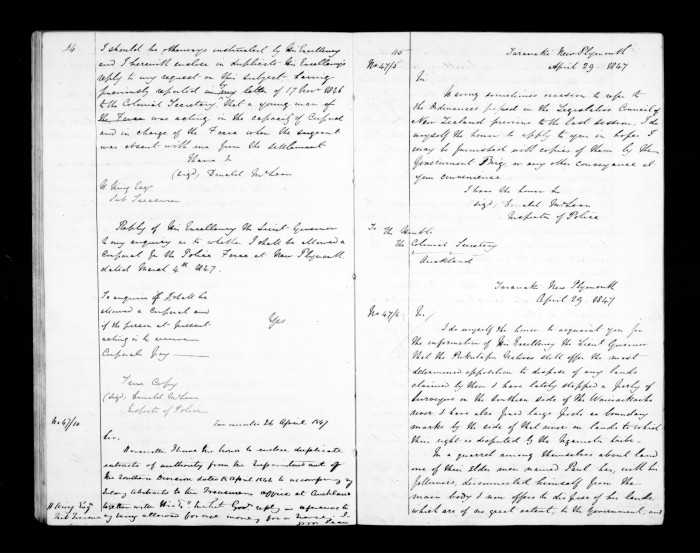 14
I should be otherways instructed by His Excellency
and I herewith enclose in duplicate His Excellency's
reply to my request on this subject having
previously reported in my letter of 17 Novr 1846
to the Colonial Secretary that a young man of
the Force was acting in the capacity of Corporal
and in charge of the Force when the sergeant
was absent with me from the settlement
Have &
(sigd) Donald McLean
H. King Esqr
Sub Treasurer
Reply of His Excellency the Lieut Governor
to my enquiry as to whether I shall be allowed a
Corporal for the Police Force at New Plymouth
dated March 4th 1847.
To enquire if I shall be
allowed a Corporal and
if the person at present
acting is to receive
Corporals pay
Yes
True Copy
(sigd) Donald McLean
Inspector of Police
No 47/10
Taranaki 26 April 1847
Sir,
I have the honor to enclose duplicate
extracts of authority from the Superintendent of
the Southern Division dated 18 April 1846 to accompany my
Abstracts to the Treasurers office at Auckland
together with His Govt reply in reference to
my being allowed forage money for a horse, I
H King Esqr
Sub Treasurer
No 47/5
Taranaki New Plymouth
April 29. 1847
Sir
Having sometimes occasion to refer to
the Ordinances passed in the Legislative Council of
New Zealand previous to the last session, I do
myself the honor to apply to you in hopes I
may be furnished with copies of them by the
Government Brig, or any other conveyance at
your convenience
I have the honor &
(sigd) Donald McLean
Inspector of Police
To The Honble
The Colonial Secretary
Auckland
Taranaki New Plymouth
April 29 1847
No 47/6
Sir,
I do myself the honor to acquaint you for
the information of His Excellency the Lieut Governor
that the Puketapu Natives still offer the most
determined opposition to dispose of any lands
claimed by them I have lately stopped a party of
Surveyors on the Southern side of the
river I have also fixed large posts as boundary
marks by the side of that river on lands to which
their right is disputed by the Ngamotu tribe-
In a quarrel among themselves about land
one of their Elder men named Paul has, with his
followers, disconnected himself from the
main body & now offers to dispose of his lands,
which are of no great extent, to the Government, and